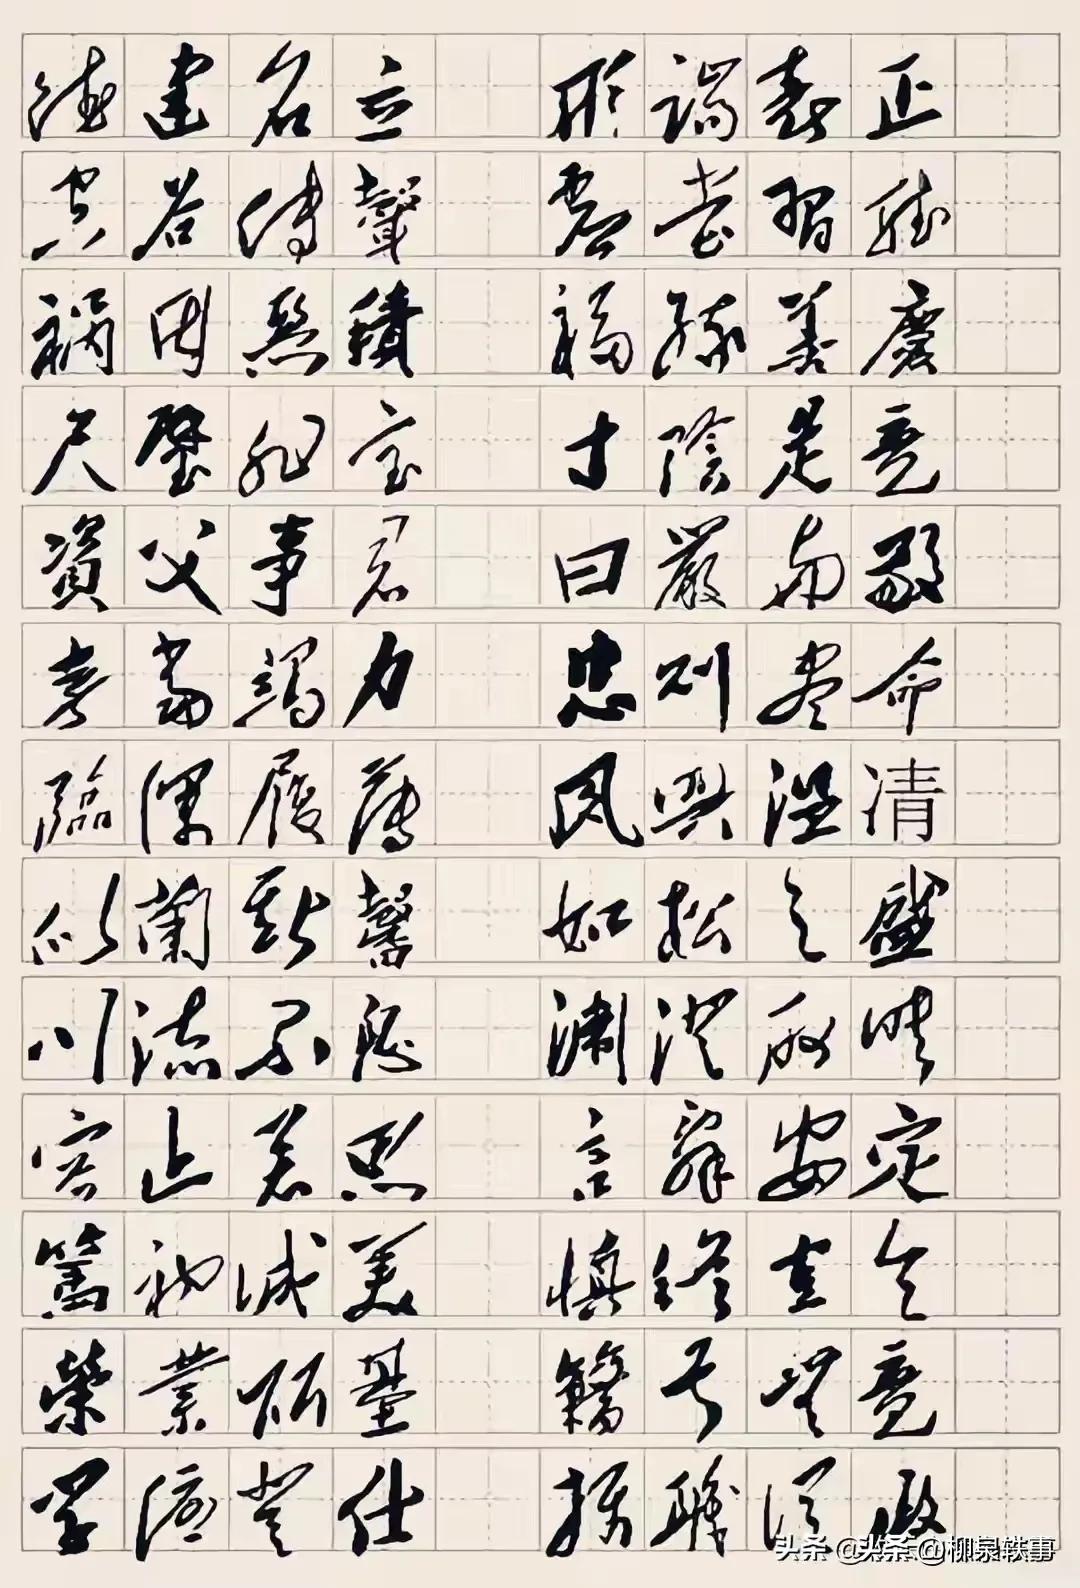 德建名立 形端表正
空谷传聲 虚堂習聽
禍因惡積 福緣善慶
尺璧非宝 寸陰是竞
資父事君 曰嚴与敬
孝當竭力 忠则尽命
臨深履薄 夙興温凊
似蘭斯馨 如松之盛
川流不息 渊澄取映
容止若思 言辞安定
篤初诚美 慎终宜令
榮業所基 籍甚無竟
学優登仕 摄职從政
头条 @头条 @柳泉轶事